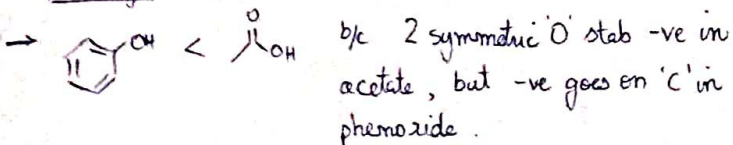 → OH < O OH b/c 2 symmetric 'O' stab -ve in
acetate, but -ve goes on 'C' in
phenoxide.